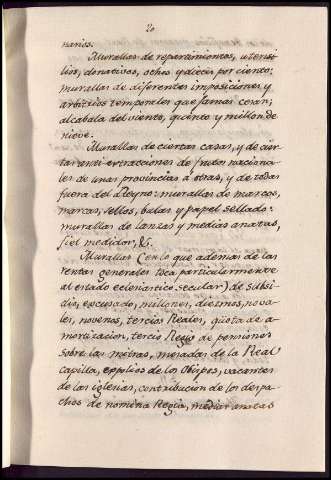 20
narios.
Murallas de repartimientos, utensi-
lios, donativos, ochos y dieces por ciento;
murallas de diferentes imposiciones y
arbitrios temporales que jamas cesan;
alcabala del viento, quinto y millon de
nieve.
Murallas de ciertas casas, y de cier-
tas extracciones de frutos naciona-
les de unas provincias á otras, y de todas
fuera del Reyno: murallas de marcos,
marcas, sellos, bulas y papel sellado:
murallas de lanzas y medias anatas,
fiel medidor, &.
Murallas (en lo que ademas de las
rentas generales toca particularmente
al estado eclesiastico secular) de subsi-
dio, escusado, millones, diezmos, nova-
les, novenos, tercias Reales, quota de a-
mortizacion, tercio Regio de pensiones
sobre las mitras, mesadas de la Real
capilla, expolios de los Obispos, vacantes
de las iglesias, contribucion de los despa-
chos de nomina Regia, medias anatas